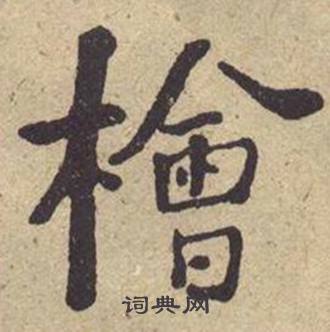 檜
词典网